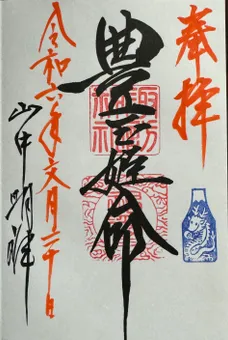 奉拝
豊玉姫命
諏訪
神社
令和六年文月二十日
山中明神